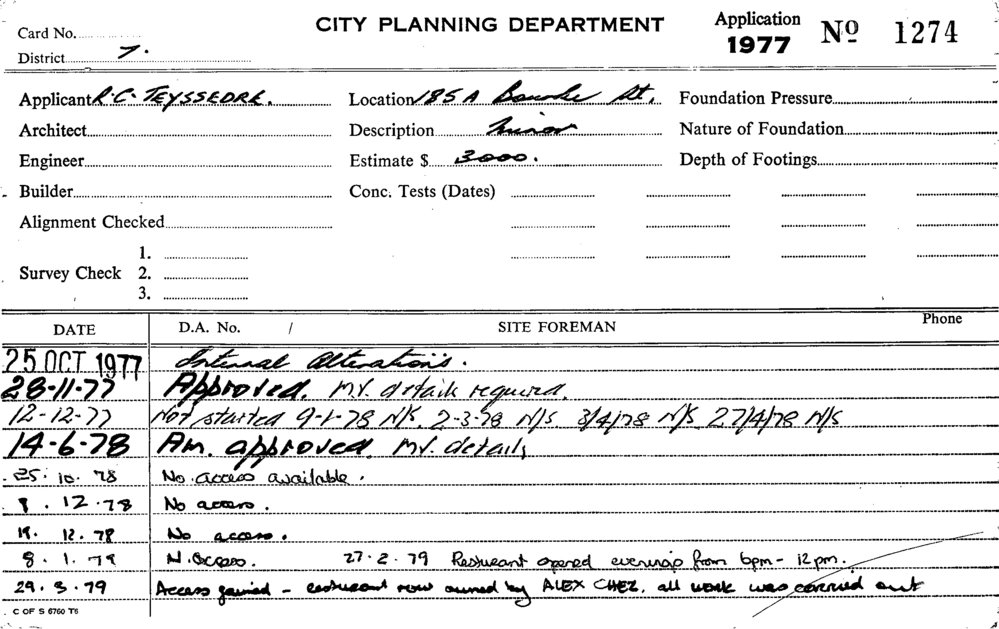 Card No.
CITY PLANNING DEPARTMENT
Application 1977 Nº 1274
District 7.
Applicant R.C. TEYSSEDRE. Location 185A Bourke St. Foundation Pressure
Architect Description Minor Nature of Foundation
Engineer Estimate $ 3000. Depth of Footings
Builder Conc. Tests (Dates)
Alignment Checked
1.
Survey Check 2.
3.
DATE D.A. No. / SITE FOREMAN Phone
25 OCT 1977 Internal Alterations.
28-11-77 Approved. MV. details required.
12-12-77 Not started 9-1-78 N/S. 2-3-78 N/S. 3/4/78 N/S 27/4/78 N/S
14-6-78 Am. approved. MV. details
25.10.78 No access available.
8.12.78 No access.
19.12.78 No access.
8.1.79 N. Access. 27.2.79 Restuarant opened evenings from 6pm - 12pm.
29.3.79 Access gained - restuarant now owned by ALEX CHEZ. all work was carried out
C OF S 6760 T6